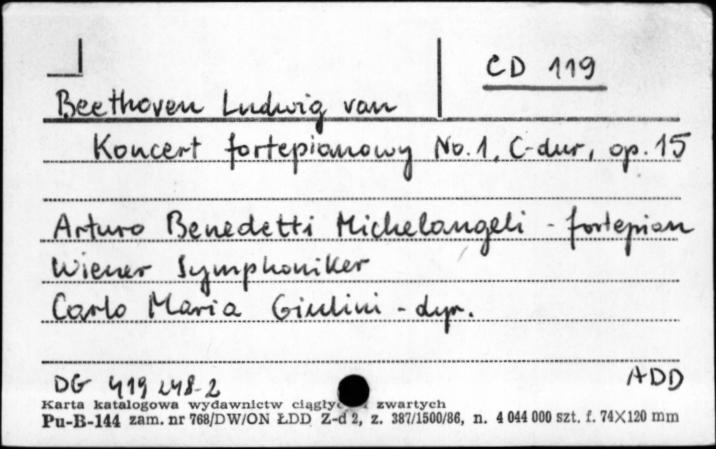 CD 119
Beethoven Ludwig van
Koncert fortepianowy No.1, C-dur, op. 15
Arturo Benedetti Michelangeli - fortepian
Wiener Symphoniker
Carlo Maria Giulini - dyr.
DG 419 248-2
ADD
Karta katalogowa wydawnictw zwartych
Pu-B-144 zam. nr 768/DW/ON ŁDD Z-d 2, z. 387/1500/86, n. 4 044 000 szt. f. 74X120 mm